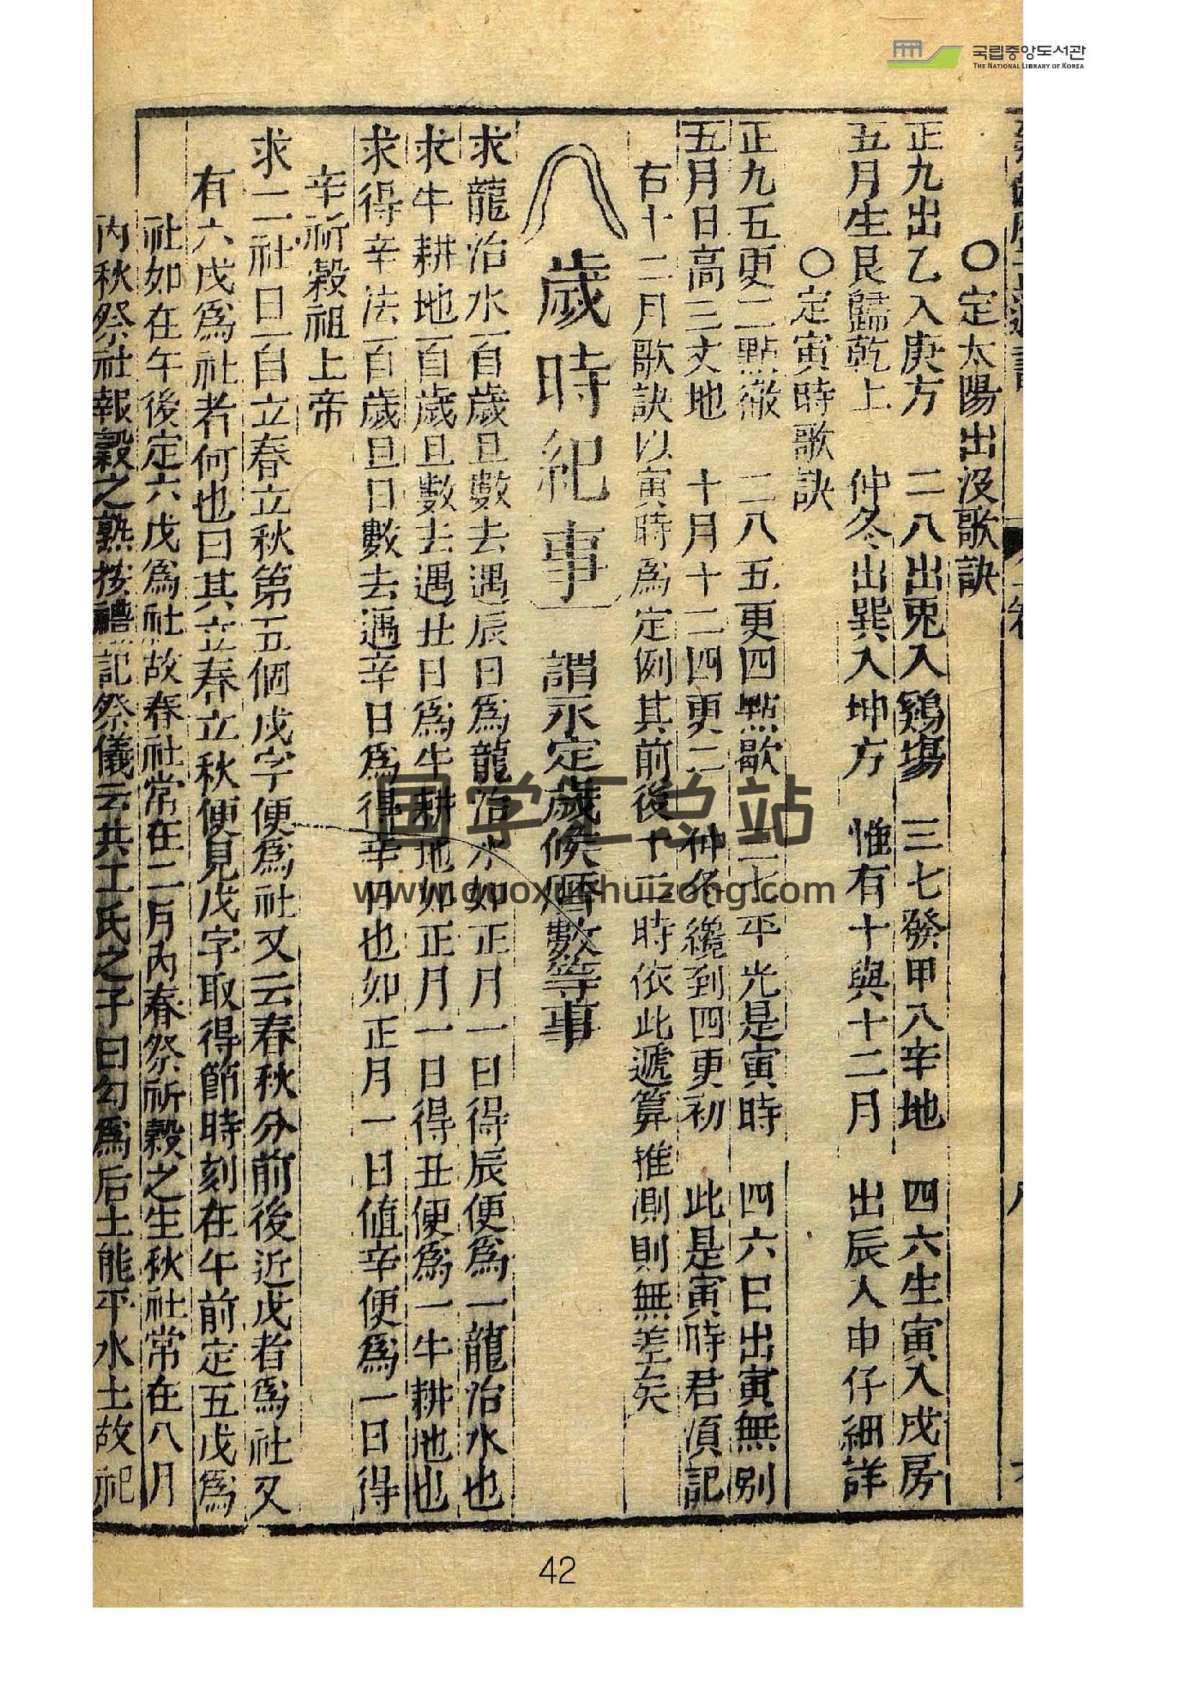 국립중앙도서관
THE NATIONAL LIBRARY OF KOREA
○定太陽出沒歌訣
正九出乙入庚方　二八出兎入鷄塲　三七發甲入辛地　四六生寅入戌房
五月生艮歸乾上　仲冬出巽入坤方　惟有十與十二月　出辰入申仔細詳
○定寅時歌訣
正九五更二點徹　二八五更四點歇　三七平光是寅時　四六日出寅無別
五月日高三丈地　十月十二四更二　仲冬纔到四更初　此是寅時君湏記
右十二月歌訣以寅時爲定例其前後十二時依此遞算推測則無差矣
歲時紀事　謂永定歲候曆數等事
求龍治水一自歲旦數去遇辰日爲龍治水如正月一日得辰便爲一龍治水也
求牛耕地一自歲旦數去遇丑日爲牛耕地如正月一日得丑便爲一牛耕地也
求得辛法一自歲旦日數去遇辛日爲得辛日也如正月一日値辛便爲一日得
辛祈穀祖上帝
求二社日一自立春立秋第五個戊字便爲社又云春秋分前後近戊者爲社又
有六戊爲社者何也曰其立春立秋便見戊字取得節時刻在午前定五戊爲
社如在午後定六戊爲社故春社常在二月內春祭祈穀之生秋社常在八月
內秋祭社報穀之熟按禮記祭儀云共工氏之子曰勾爲后土能平水土故祀
国学汇总站
www.guoxuehuizong.com
42